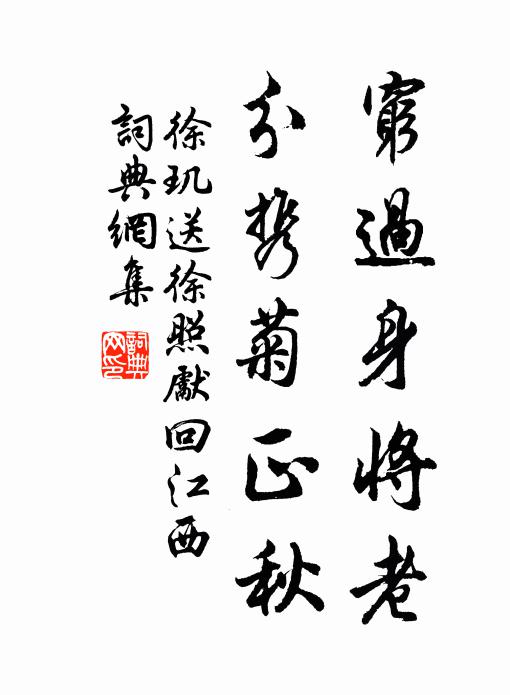 窮過身將老
分携菊正秋
徐玑送徐照獻回江西
詞典網集
詞典